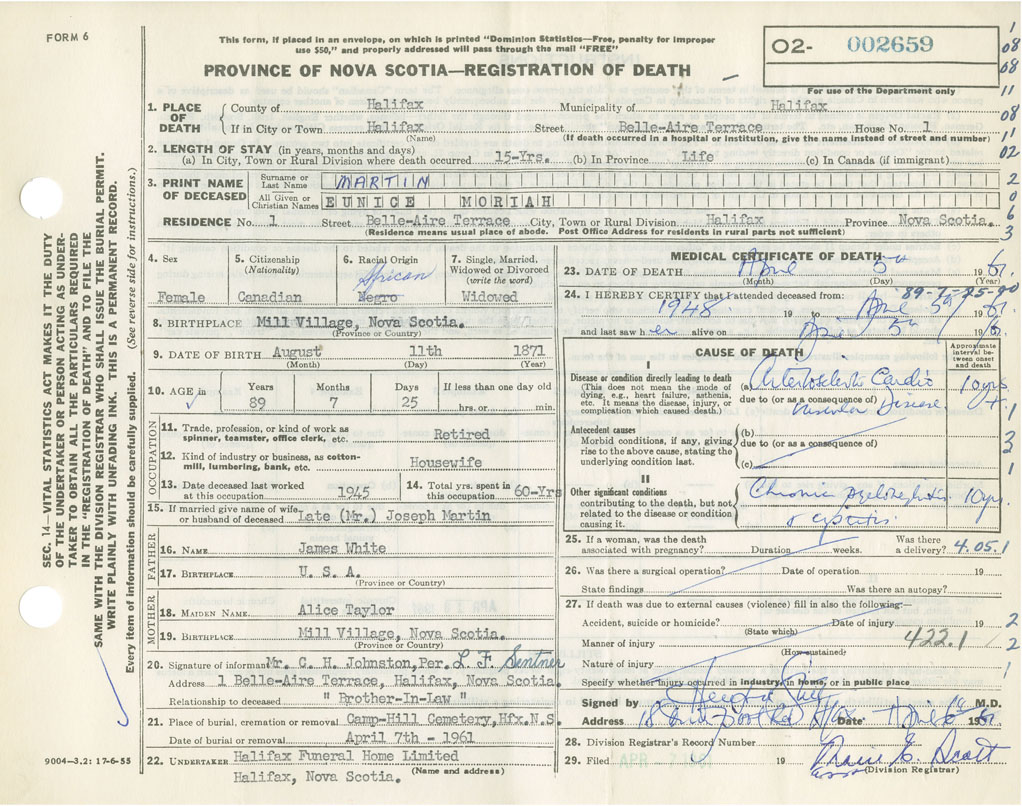 FORM 6
This form, if placed in an envelope, on which is printed "Dominion Statistics—Free, penalty for improper
use $50," and properly addressed will pass through the mail "FREE"
PROVINCE OF NOVA SCOTIA—REGISTRATION OF DEATH
O2- 002659
For use of the Department only
1. PLACE OF DEATH County of Halifax Municipality of Halifax
If in City or Town Halifax Street Belle-Aire Terrace House No. 1
(Name) (If death occurred in a hospital or institution, give the name instead of street and number)
2. LENGTH OF STAY (in years, months and days)
(a) In City, Town or Rural Division where death occurred 15-Yrs. (b) In Province Life (c) In Canada (if immigrant)
3. PRINT NAME OF DECEASED Surname or Last Name MARTIN
All Given or Christian Names EUNICE MORIAH
RESIDENCE No. 1 Street Belle-Aire Terrace City, Town or Rural Division Halifax Province Nova Scotia.
(Residence means usual place of abode. Post Office Address for residents in rural parts not sufficient)
4. Sex Female
5. Citizenship (Nationality) Canadian
6. Racial Origin African Negro
7. Single, Married, Widowed or Divorced (write the word) Widowed
8. BIRTHPLACE Mill Village, Nova Scotia.
(Province or Country)
9. DATE OF BIRTH August 11th 1871
(Month) (Day) (Year)
10. AGE in Years 89 Months 7 Days 25 If less than one day old hrs. or min.
OCCUPATION
11. Trade, profession, or kind of work as spinner, teamster, office clerk, etc. Retired
12. Kind of industry or business, as cotton-mill, lumbering, bank, etc. Housewife
13. Date deceased last worked at this occupation 1945
14. Total yrs. spent in this occupation 60-Yrs
15. If married give name of wife or husband of deceased Late (Mr.) Joseph Martin
FATHER
16. NAME James White
17. BIRTHPLACE U. S. A.
(Province or Country)
MOTHER
18. MAIDEN NAME Alice Taylor
19. BIRTHPLACE Mill Village, Nova Scotia.
(Province or Country)
20. Signature of informant Mr. C. H. Johnston, Per. L. F. Sentner
Address 1 Belle-Aire Terrace, Halifax, Nova Scotia.
Relationship to deceased " Brother-In-Law "
21. Place of burial, cremation or removal Camp-Hill Cemetery, Hfx.N.S.
Date of burial or removal April 7th - 1961
22. UNDERTAKER Halifax Funeral Home Limited
Halifax, Nova Scotia. (Name and address)
MEDICAL CERTIFICATE OF DEATH
23. DATE OF DEATH April 5th 1961
(Month) (Day) (Year)
89-7-25-00
24. I HEREBY CERTIFY that I attended deceased from:
1948 19 to April 5th 1961
and last saw her alive on April 5th 1961
CAUSE OF DEATH
Approximate interval between onset and death
I
Disease or condition directly leading to death
(This does not mean the mode of dying, e.g., heart failure, asthenia, etc. It means the disease, injury, or complication which caused death.)
(a) Arteriosclerotic Cardio 10 yrs +
due to (or as a consequence of)
vascular Disease
Antecedent causes
Morbid conditions, if any, giving rise to the above cause, stating the underlying condition last.
(b)
due to (or as a consequence of)
(c)
II
Other significant conditions
contributing to the death, but not related to the disease or condition causing it.
Chronic pyelonephritis 10 yrs.
& cystitis
25. If a woman, was the death associated with pregnancy? Duration weeks. Was there a delivery? 4.05.1
26. Was there a surgical operation? Date of operation 19
State findings Was there an autopsy?
27. If death was due to external causes (violence) fill in also the following:—
Accident, suicide or homicide? Date of injury 19
(State which)
Manner of injury 422.1
(How sustained)
Nature of injury
Specify whether injury occurred in industry, in home, or in public place
Signed by M.D.
Address Date April 6 1961
28. Division Registrar's Record Number
29. Filed APR 7 1961 19
(Division Registrar)
SEC. 14—VITAL STATISTICS ACT MAKES IT THE DUTY
OF THE UNDERTAKER OR PERSON ACTING AS UNDER-
TAKER TO OBTAIN ALL THE PARTICULARS REQUIRED
IN THE "REGISTRATION OF DEATH" AND TO FILE THE
SAME WITH THE DIVISION REGISTRAR WHO SHALL ISSUE THE BURIAL PERMIT.
WRITE PLAINLY WITH UNFADING INK. THIS IS A PERMANENT RECORD.
Every item of information should be carefully supplied. (See reverse side for instructions.)
9004—3.2: 17-6-55
1
08
68
11
08
11
02
2
0
6
3
1
3
1
1
2
2
1